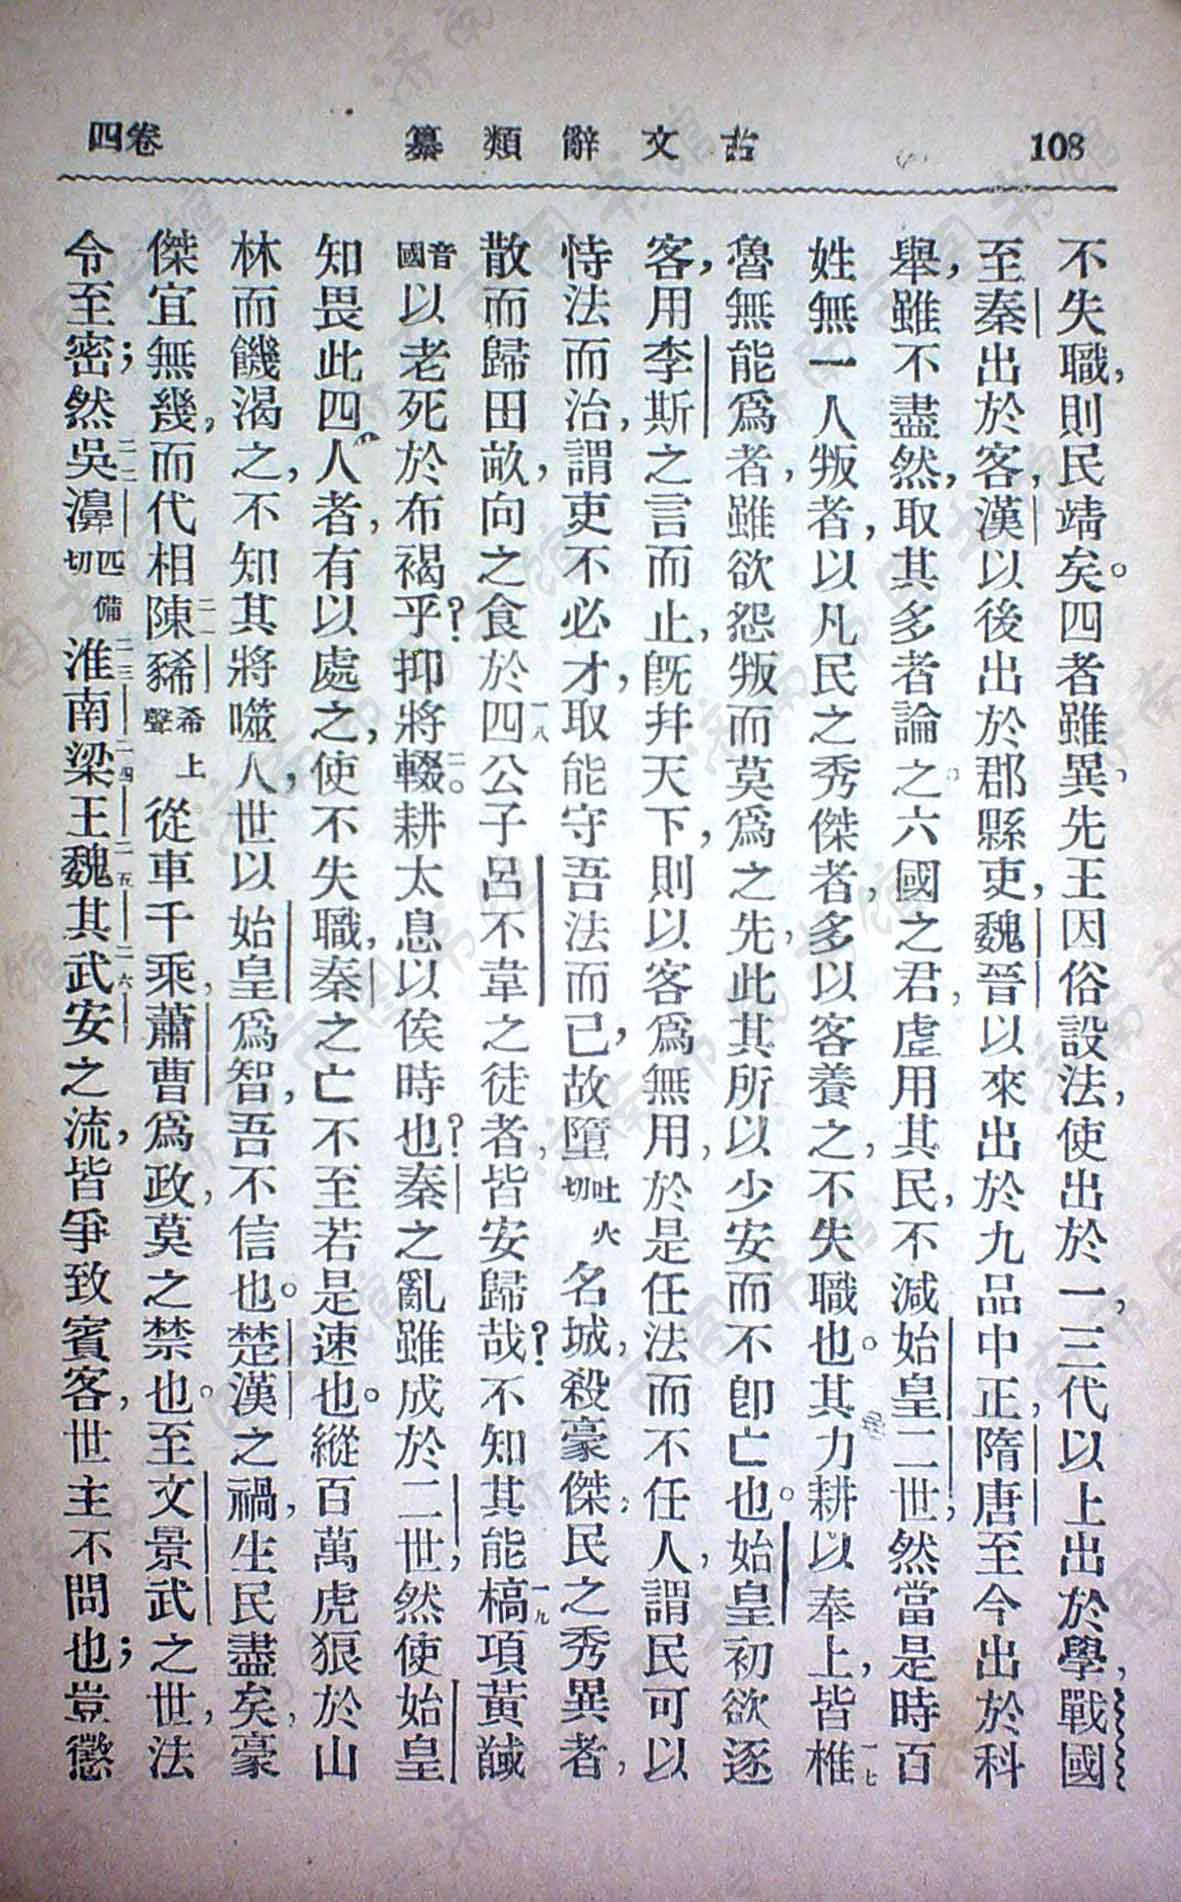 108 古文辭類纂 卷四
不失職，則民靖矣。四者雖異，先王因俗設法，使出於一，三代以上出於學，戰國
至秦出於客，漢以後出於郡縣吏，魏晉以來出於九品中正，隋唐至今出於科
舉，雖不盡然，取其多者論之，六國之君，虐用其民，不減始皇二世，然當是時百
姓無一人叛者，以凡民之秀傑者，多以客養之，不失職也。其力耕以奉上，皆椎一七
魯無能爲者，雖欲怨叛而莫爲之先，此其所以少安而不卽亡也。始皇初欲逐
客，用李斯之言而止，旣幷天下，則以客爲無用，於是任法而不任人，謂民可以
恃法而治，謂吏不必才，取能守吾法而已，故墮吐火切名城，殺豪傑，民之秀異者，
散而歸田畝，向之食於四一八公子呂不韋之徒者，皆安歸哉？不知其能槁一九項黃馘
音國以老死於布褐乎？抑將輟二〇耕太息以俟時也？秦之亂雖成於二世，然使始皇
知畏此四人者，有以處之，使不失職，秦之亡不至若是速也。縱百萬虎狼於山
林而饑渴之，不知其將噬人，世以始皇爲智，吾不信也。楚漢之禍，生民盡矣，豪
傑宜無幾，而代相陳二一豨希上聲從車千乘，蕭曹爲政，莫之禁也。至文景武之世，法
令至密；然吳二二濞匹備切淮二三南梁二四王魏二五其武二六安之流，皆爭致賓客，世主不問也；豈懲